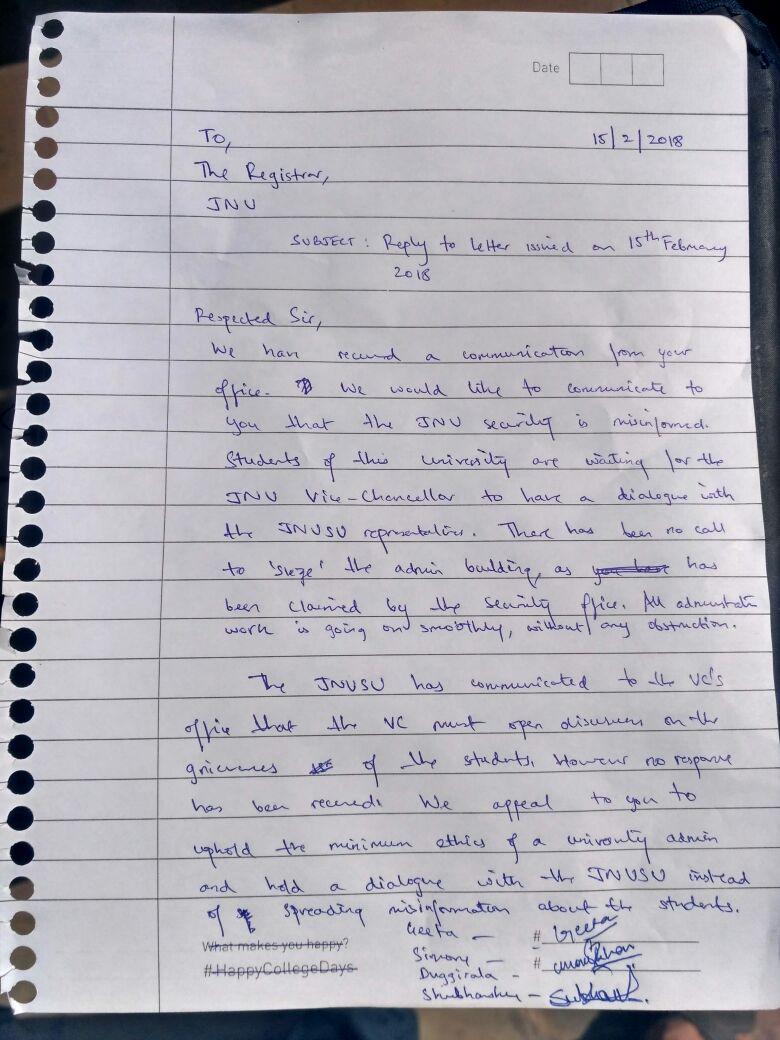 Date
To,
15/2/2018
The Registrar,
JNU
SUBJECT: Reply to letter issued on 15th February
2018
Respected Sir,
We have received a communication from your
office. We would like to communicate to
you that the JNU security is misinformed.
Students of this university are waiting for the
JNU Vice-Chancellor to have a dialogue with
the JNUSU representatives. There has been no call
to 'sieze' the admin building, as has
been claimed by the security office. All
work is going on smoothly, without any obstruction.
The JNUSU has communicated to the VC's
office that the VC must open discussions on the
of the students. However no response
has been received. We appeal to you to
uphold the minimum ethics of a university admin
and hold a dialogue with the JNUSU instead
of spreading misinformation about the students.
Geeta - # Geeta
What makes you happy?
Simone - #
#HappyCollegeDays
Duggirala -